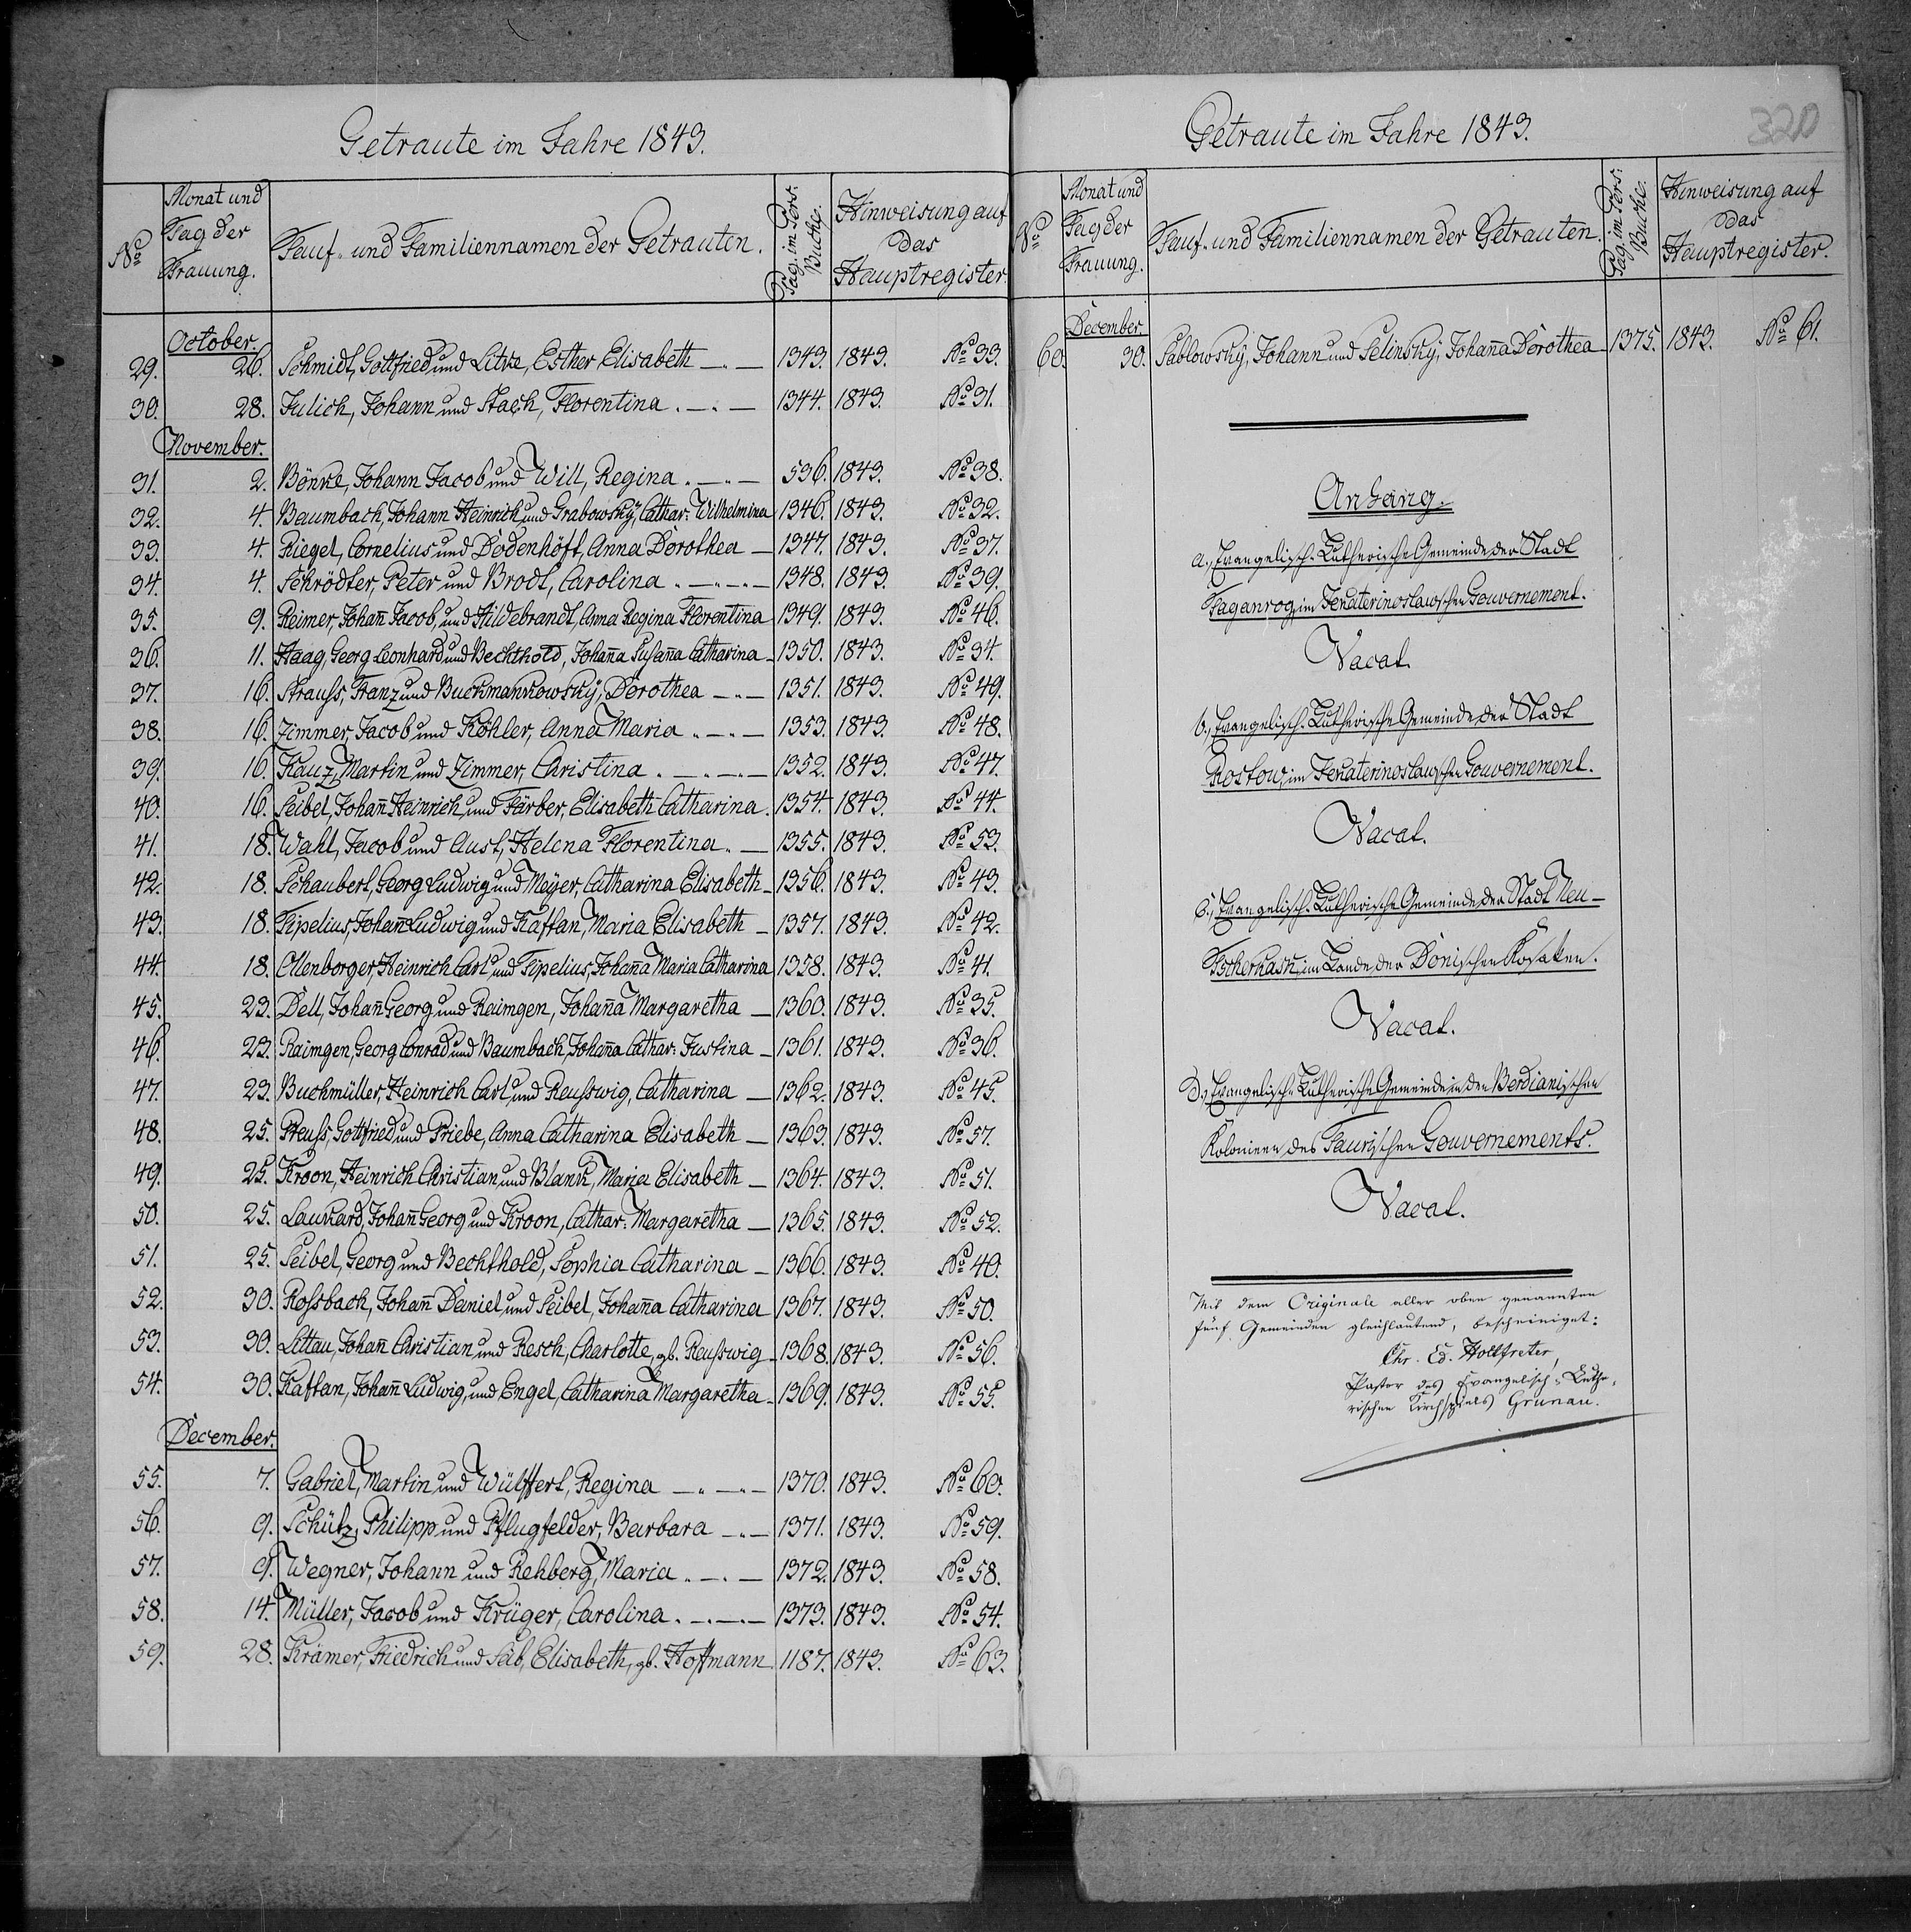 Getraute im Jahre 1843.
No
Monat und
Tag der
Trauung.
Tauf- und Familiennamen der Getrauten.
Pag. im Pers.
Buche.
Hinweisung auf
das
Hauptregister
October.
29. 26. Schmidt, Gottfried und Litke, Esther Elisabeth 1343. 1843. No 33.
30. 28. Julich, Johann und Stach, Florentina 1344. 1843. No 31.
November.
31. 2. Bönke, Johann Jacob und Will, Regina 536. 1843. No 38.
32. 4. Baumbach, Johann Heinrich und Grabowsky, Cathar: Wilhelmina 1346. 1843. No 32.
33. 4. Riegel, Cornelius und Dodenhöft, Anna Dorothea 1347. 1843. No 37.
34. 4. Schrödter, Peter und Brodt, Carolina 1348. 1843. No 39.
35. 9. Reimer, Johan̄ Jacob, und Hildebrandt, Anna Regina Florentina 1349. 1843. No 46.
36. 11. Haag, Georg Leonhard und Bechthold, Johan̄a Susan̄a Catharina 1350. 1843. No 34.
37. 16. Strauss, Franz und Buckmankowsky, Dorothea 1351. 1843. No 49.
38. 16. Zimmer, Jacob und Köhler, Anna Maria 1353. 1843. No 48.
39. 16. Kauz, Martin und Zimmer, Christina 1352. 1843. No 47.
40. 16. Seibel, Johan̄ Heinrich und Färber, Elisabeth Catharina. 1354. 1843. No 44.
41. 18. Wahl, Jacob und Aust, Helena Florentina 1355. 1843. No 53.
42. 18. Schaubert, Georg Ludwig und Meyer, Catharina Elisabeth 1356. 1843. No 43.
43. 18. Tipelius, Johan̄ Ludwig und Kaftan, Maria Elisabeth 1357. 1843. No 42.
44. 18. Ollenborger, Heinrich Carl und Tipelius, Johan̄a Maria Catharina 1358. 1843. No 41.
45. 23. Dell, Johan̄ Georg und Raimgen, Johan̄a Margaretha 1360. 1843. No 35.
46. 23. Raimgen, Georg Conrad und Baumbach, Johan̄a Cathar: Justina 1361. 1843. No 36.
47. 23. Buchmüller, Heinrich Carl, und Reusswig, Catharina 1362. 1843. No 45.
48. 25. Preuss, Gottfried und Priebe, Anna Catharina Elisabeth 1363. 1843. No 57.
49. 25. Kroon, Heinrich Christian, und Blank, Maria Elisabeth 1364. 1843. No 51.
50. 25. Laukard, Johan̄ Georg und Kroon, Cathar: Margaretha 1365. 1843. No 52.
51. 25. Seibel, Georg und Bechthold, Sophia Catharina 1366. 1843. No 40.
52. 30. Rossbach, Johan̄ Daniel und Seibel, Johan̄a Catharina 1367. 1843. No 50.
53. 30. Littau, Johan̄ Christian und Resch, Charlotte, gb. Reusswig 1368. 1843. No 56.
54. 30. Kaftan, Johan̄ Ludwig, und Engel, Catharina Margaretha 1369. 1843. No 55.
December.
55. 7. Gabriel, Martin und Wülffert, Regina 1370. 1843. No 60.
56. 9. Schütz, Philipp und Pflugfelder, Barbara 1371. 1843. No 59.
57. 9. Wegner, Johann und Rehberg, Maria 1372. 1843. No 58.
58. 14. Müller, Jacob und Krüger, Carolina 1373. 1843. No 54.
59. 28. Krämer, Friedrich und Säb, Elisabeth, gb. Hoffmann 1187. 1843. No 63.
Getraute im Jahre 1843.
320
No
Monat und
Tag der
Trauung.
Tauf- und Familiennamen der Getrauten.
Pag. im Pers.
Buche.
Hinweisung auf
das
Hauptregister.
December.
60. 30. Sablowsky, Johann und Selinsky, Johan̄a Dorothea 1375. 1843. No 61.
Anhang.
a., Evangelisch-Lutherische Gemeinde der Stadt
Taganrog, im Jekaterinoslawschen Gouvernement.
Vacat.
b., Evangelisch-Lutherische Gemeinde der Stadt
Rostow, im Jekaterinoslawschen Gouvernement.
Vacat.
c., Evangelisch-Lutherische Gemeinde der Stadt Neu-
Tscherkask, im Lande der Donischen Kosaken.
Vacat.
d., Evangelisch-Lutherische Gemeinde in den Berdianischen
Kolonieen des Taurischen Gouvernements.
Vacat.
Mit dem Originale aller oben genannten
fünf Gemeinden gleichlautend, bescheiniget:
Chr. Ed. Holtfreter,
Pastor des Evangelisch-Luthe-
rischen Kirchspiels Grunau.